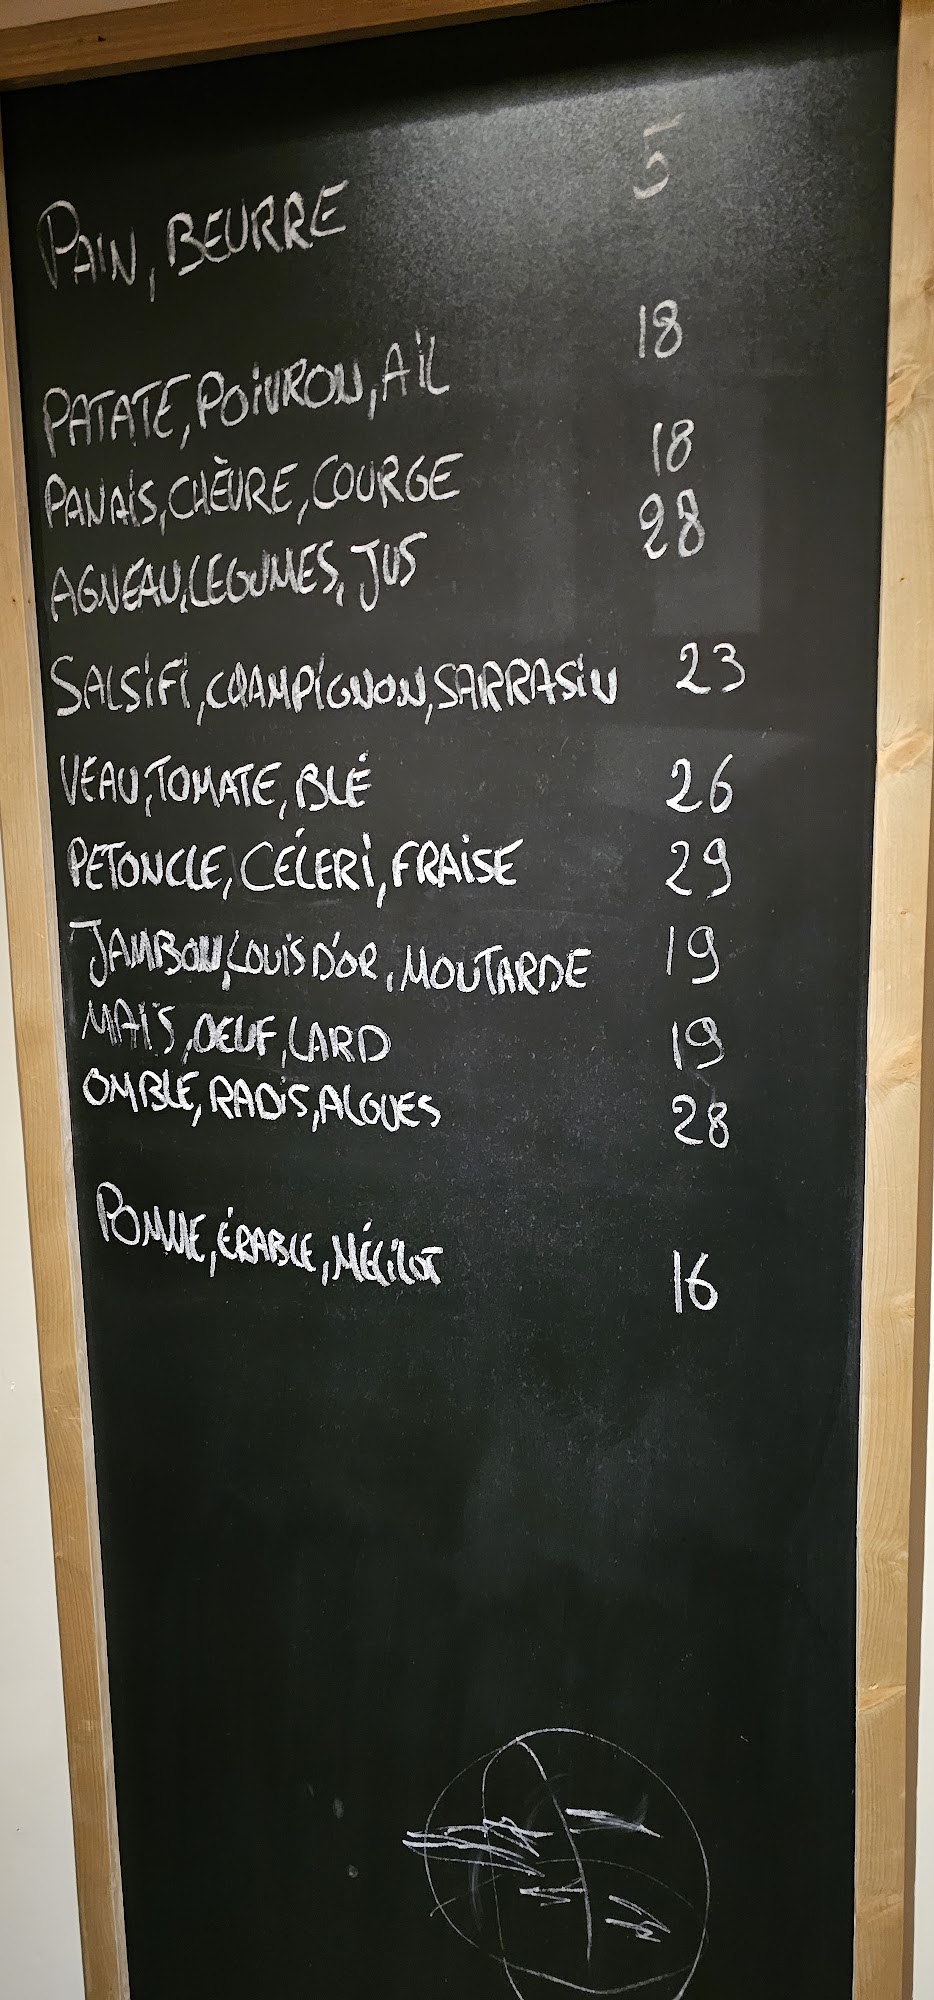 PAIN, BEURRE 5
PATATE, POIVRON, AIL 18
PANAIS, CHÈVRE, COURGE 18
AGNEAU, LEGUMES, JUS 28
SALSIFI, CHAMPIGNON, SARRASIN 23
VEAU, TOMATE, BLÉ 26
PETONCLE, CÉLERI, FRAISE 29
JAMBON, LOUIS D'OR, MOUTARDE 19
MAÏS, OEUF, LARD 19
OMBLE, RADIS, ALGUES 28
POMME, ÉRABLE, MÉLILOT 16